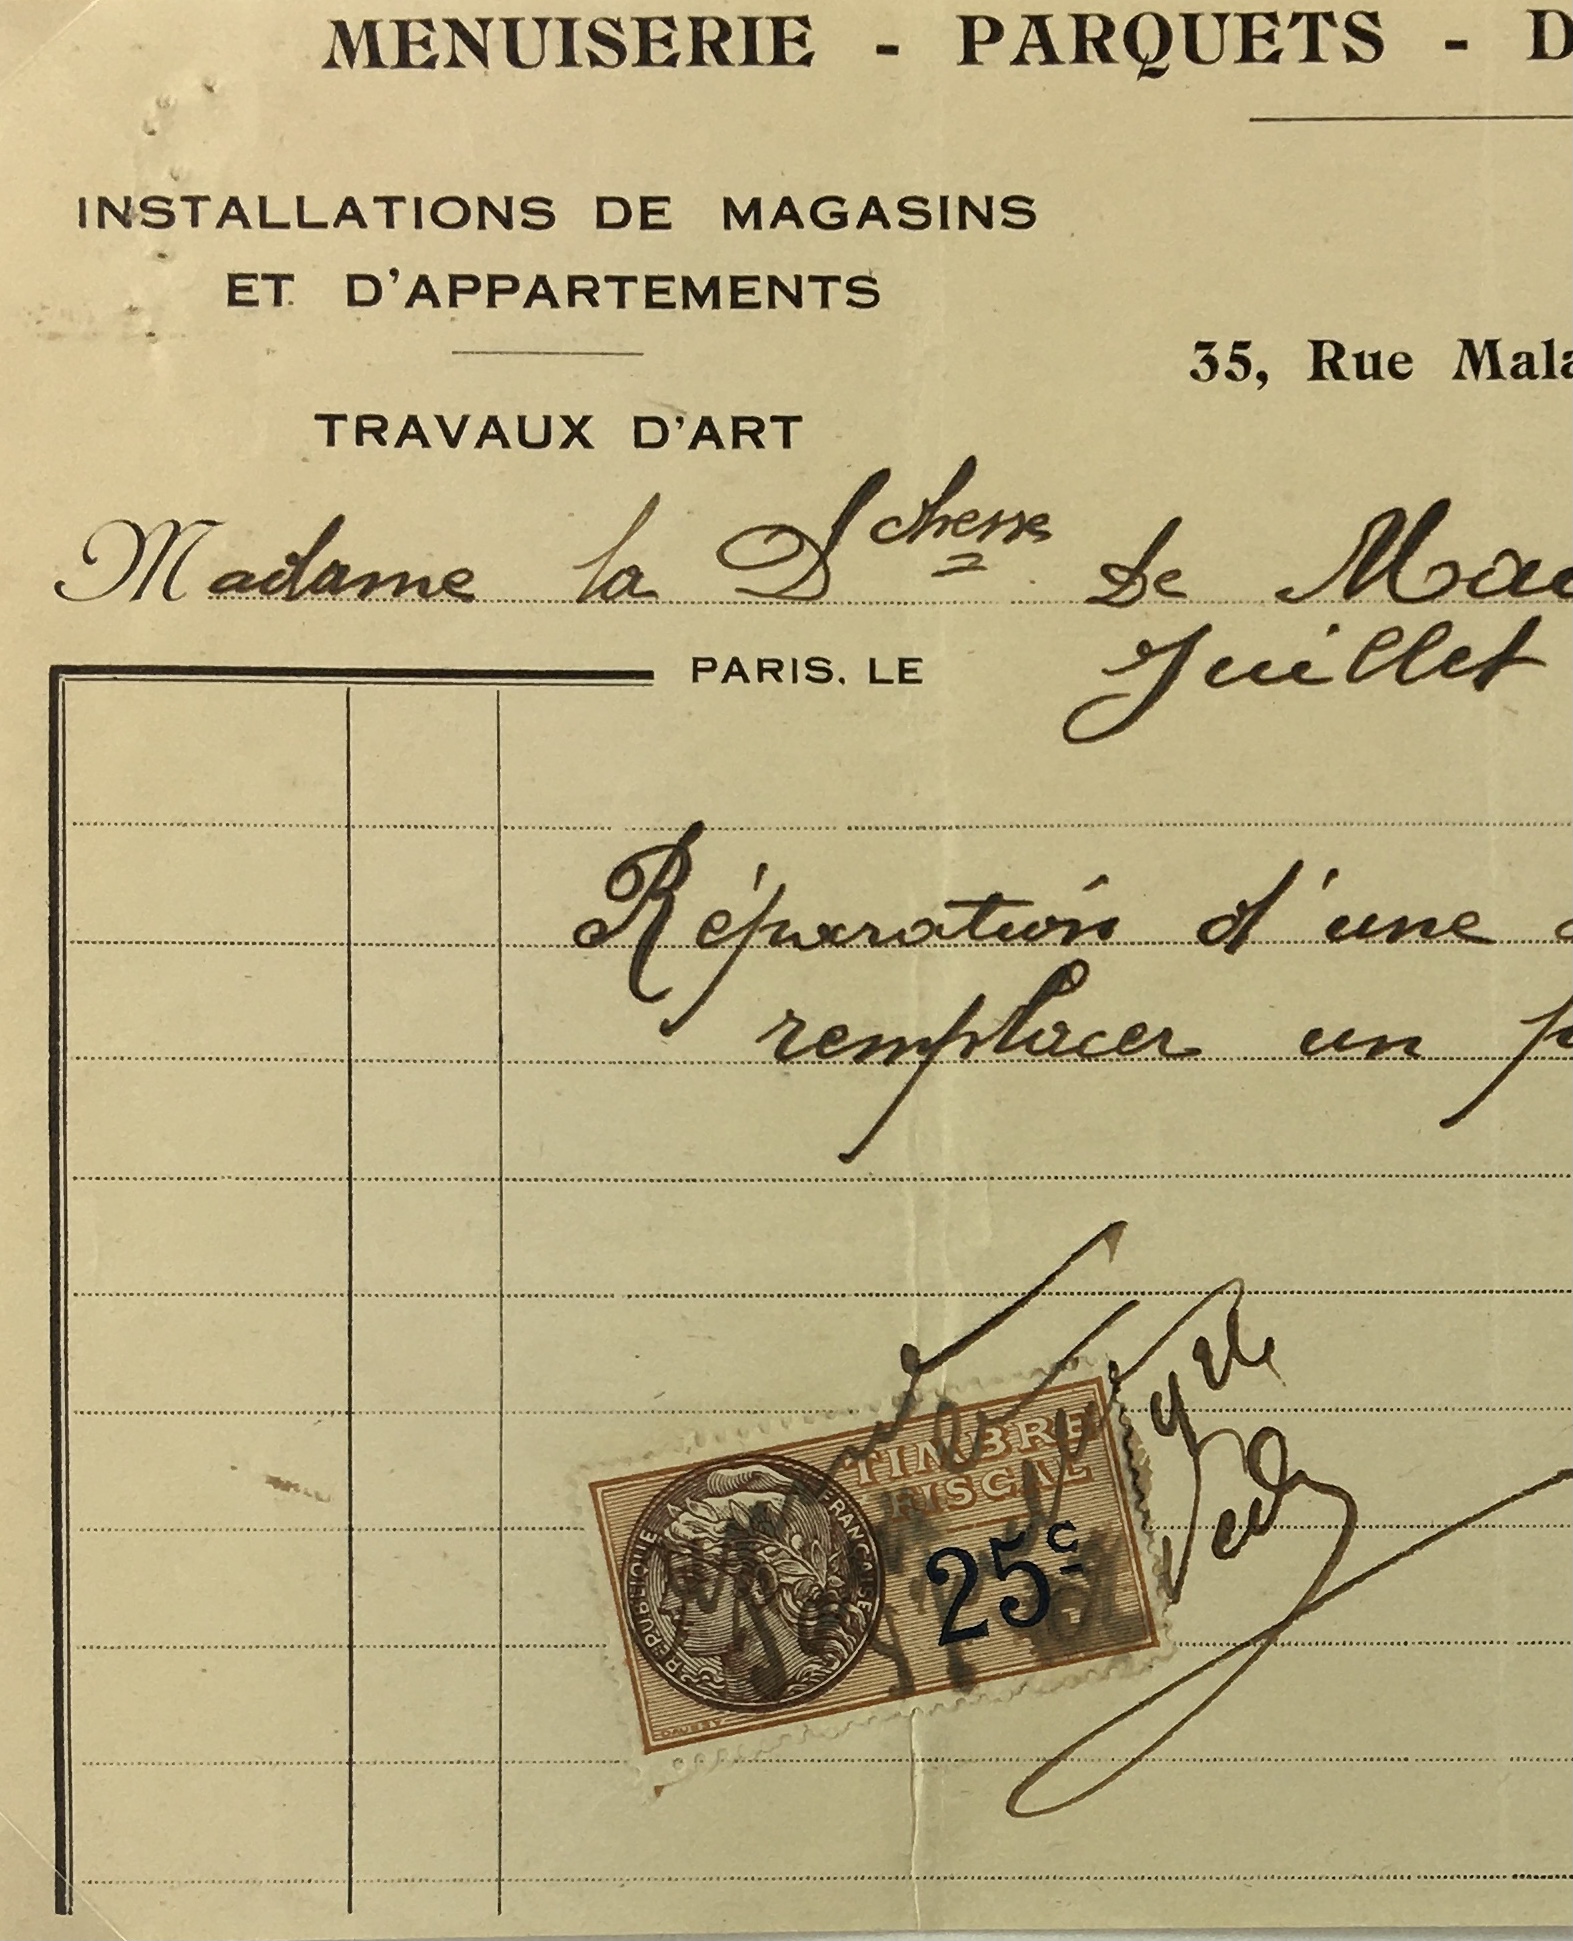 MENUISERIE - PARQUETS - D
INSTALLATIONS DE MAGASINS
ET D'APPARTEMENTS
35, Rue Mala
TRAVAUX D'ART
Madame la Dchesse De Mac
PARIS, LE Juillet
Réparation d'une
remplacer un p
TIMBRE
FISCAL
RÉPUBLIQUE FRANÇAISE
25c
DAUSSY